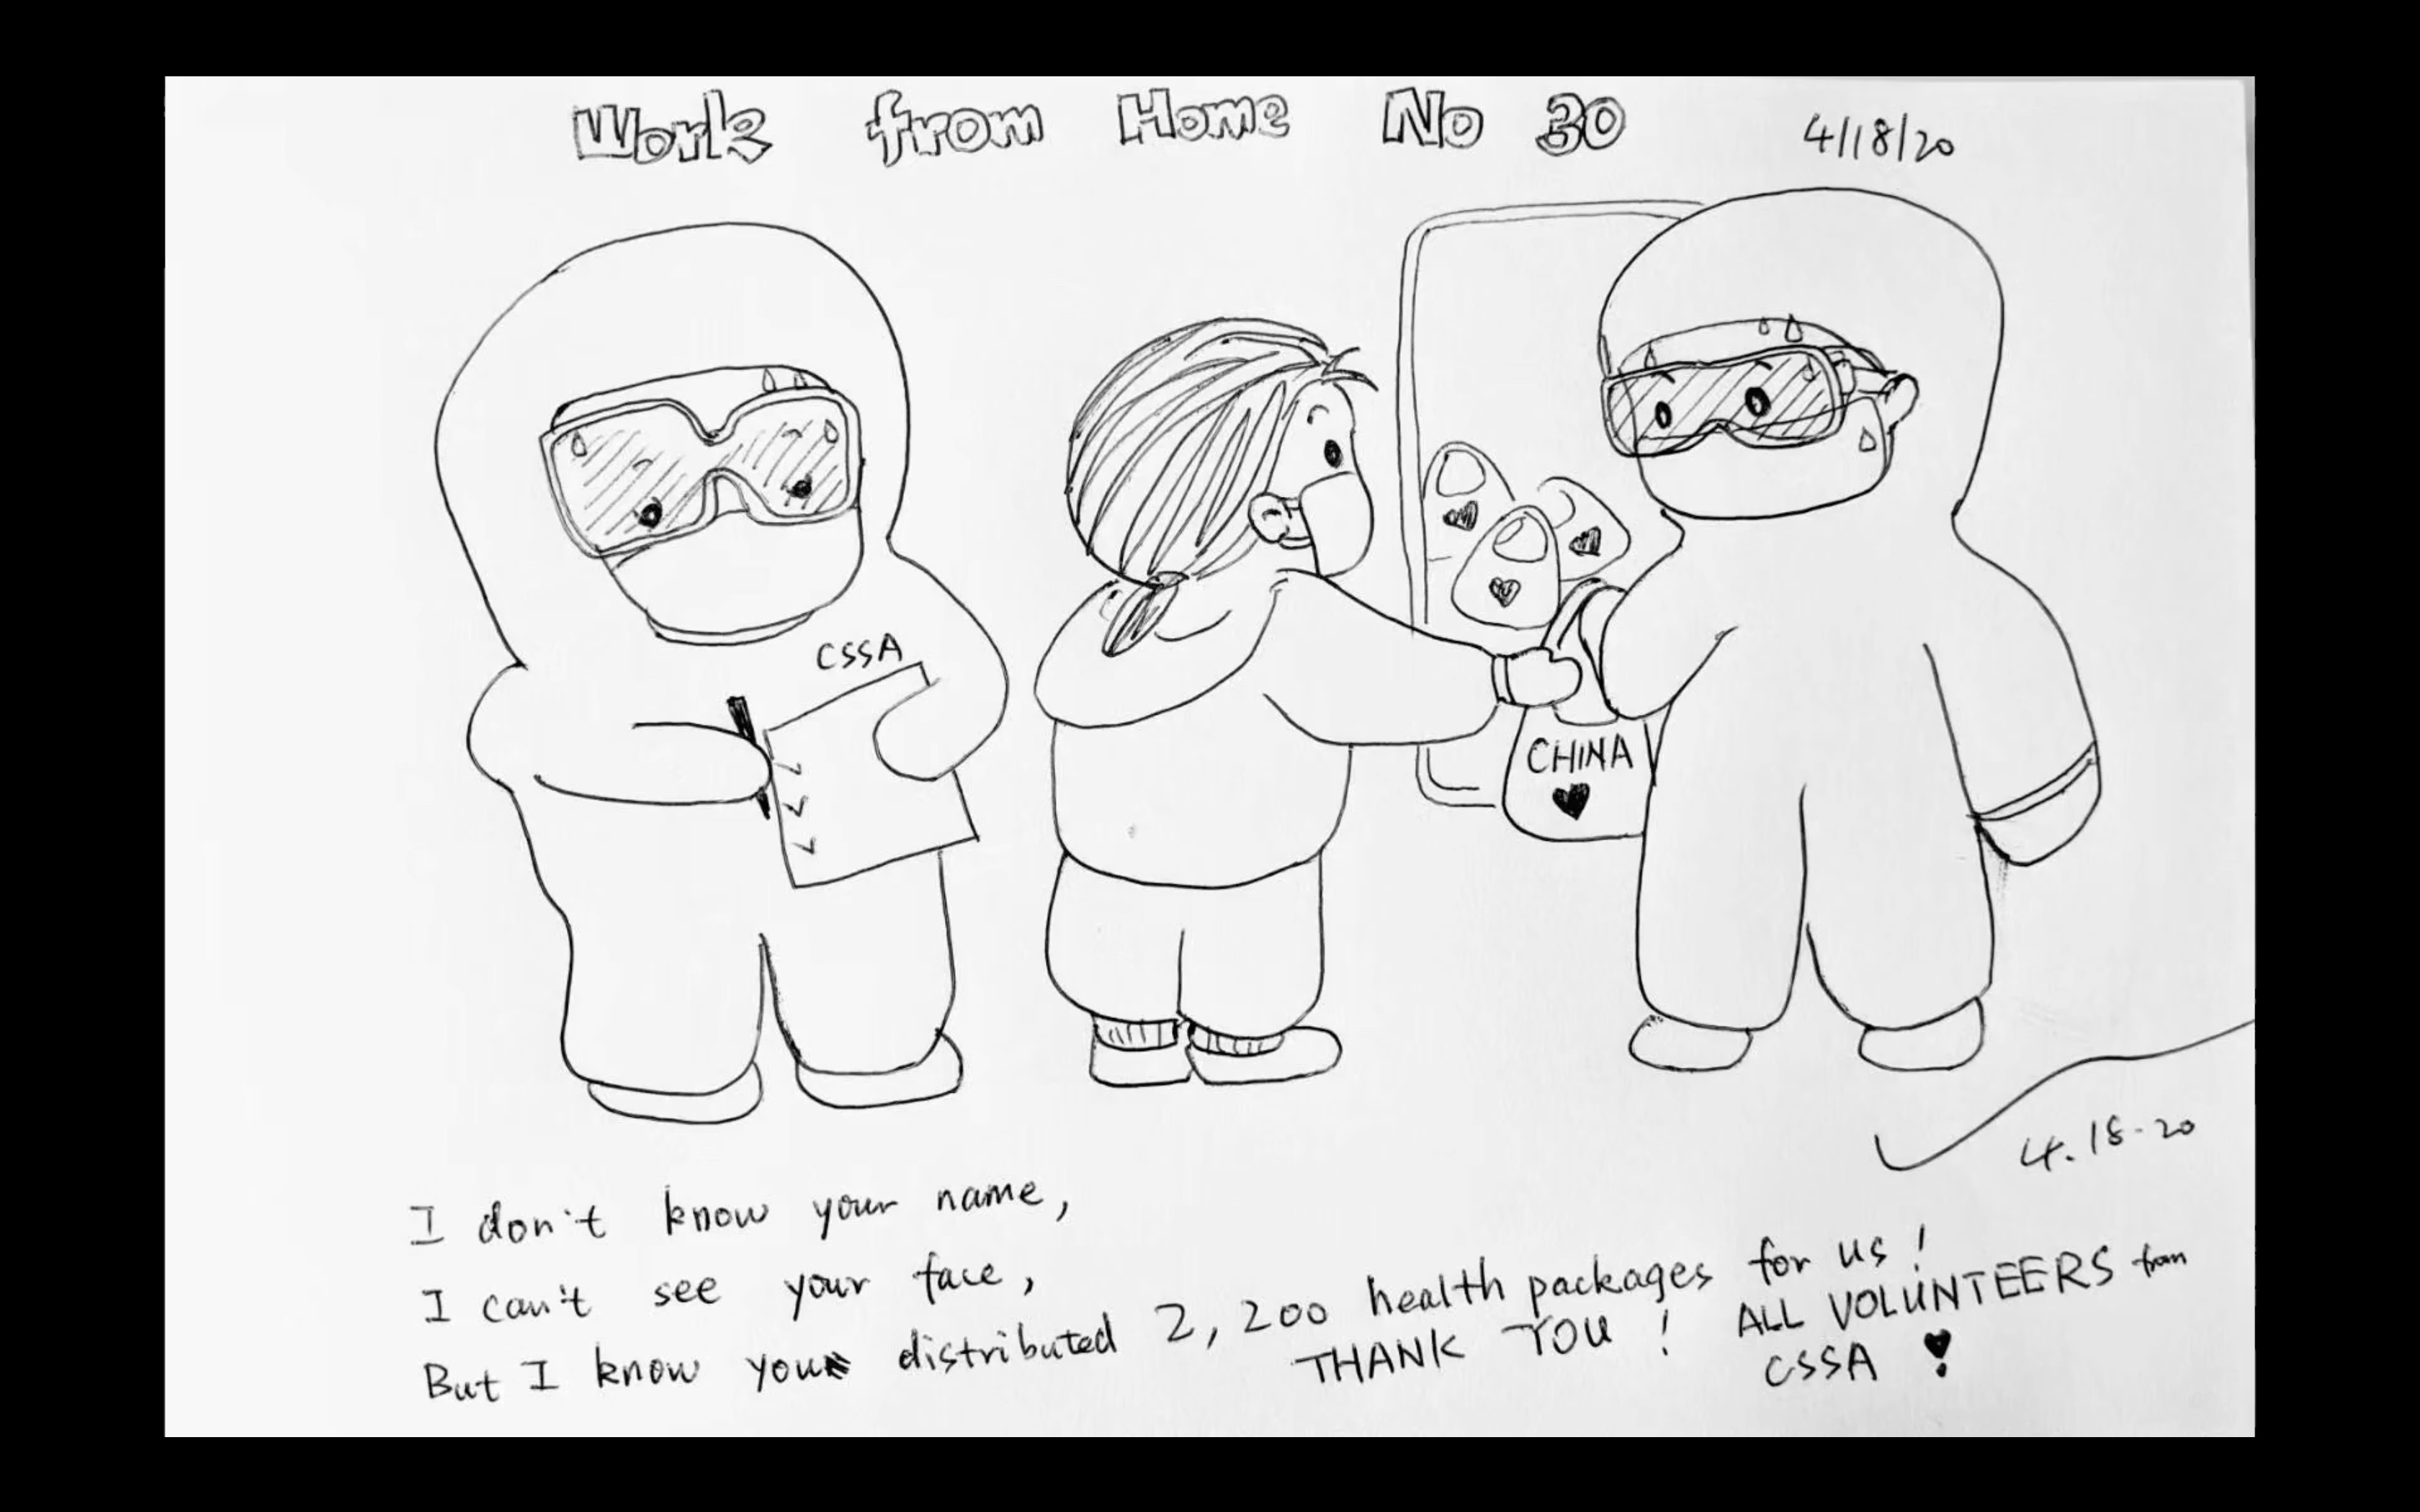 Work from Home No 30
4/18/20
CSSA
CHINA
4.18-20
I don't know your name,
I can't see your face,
But I know you distributed 2,200 health packages for us!
THANK YOU! ALL VOLUNTEERS from
CSSA